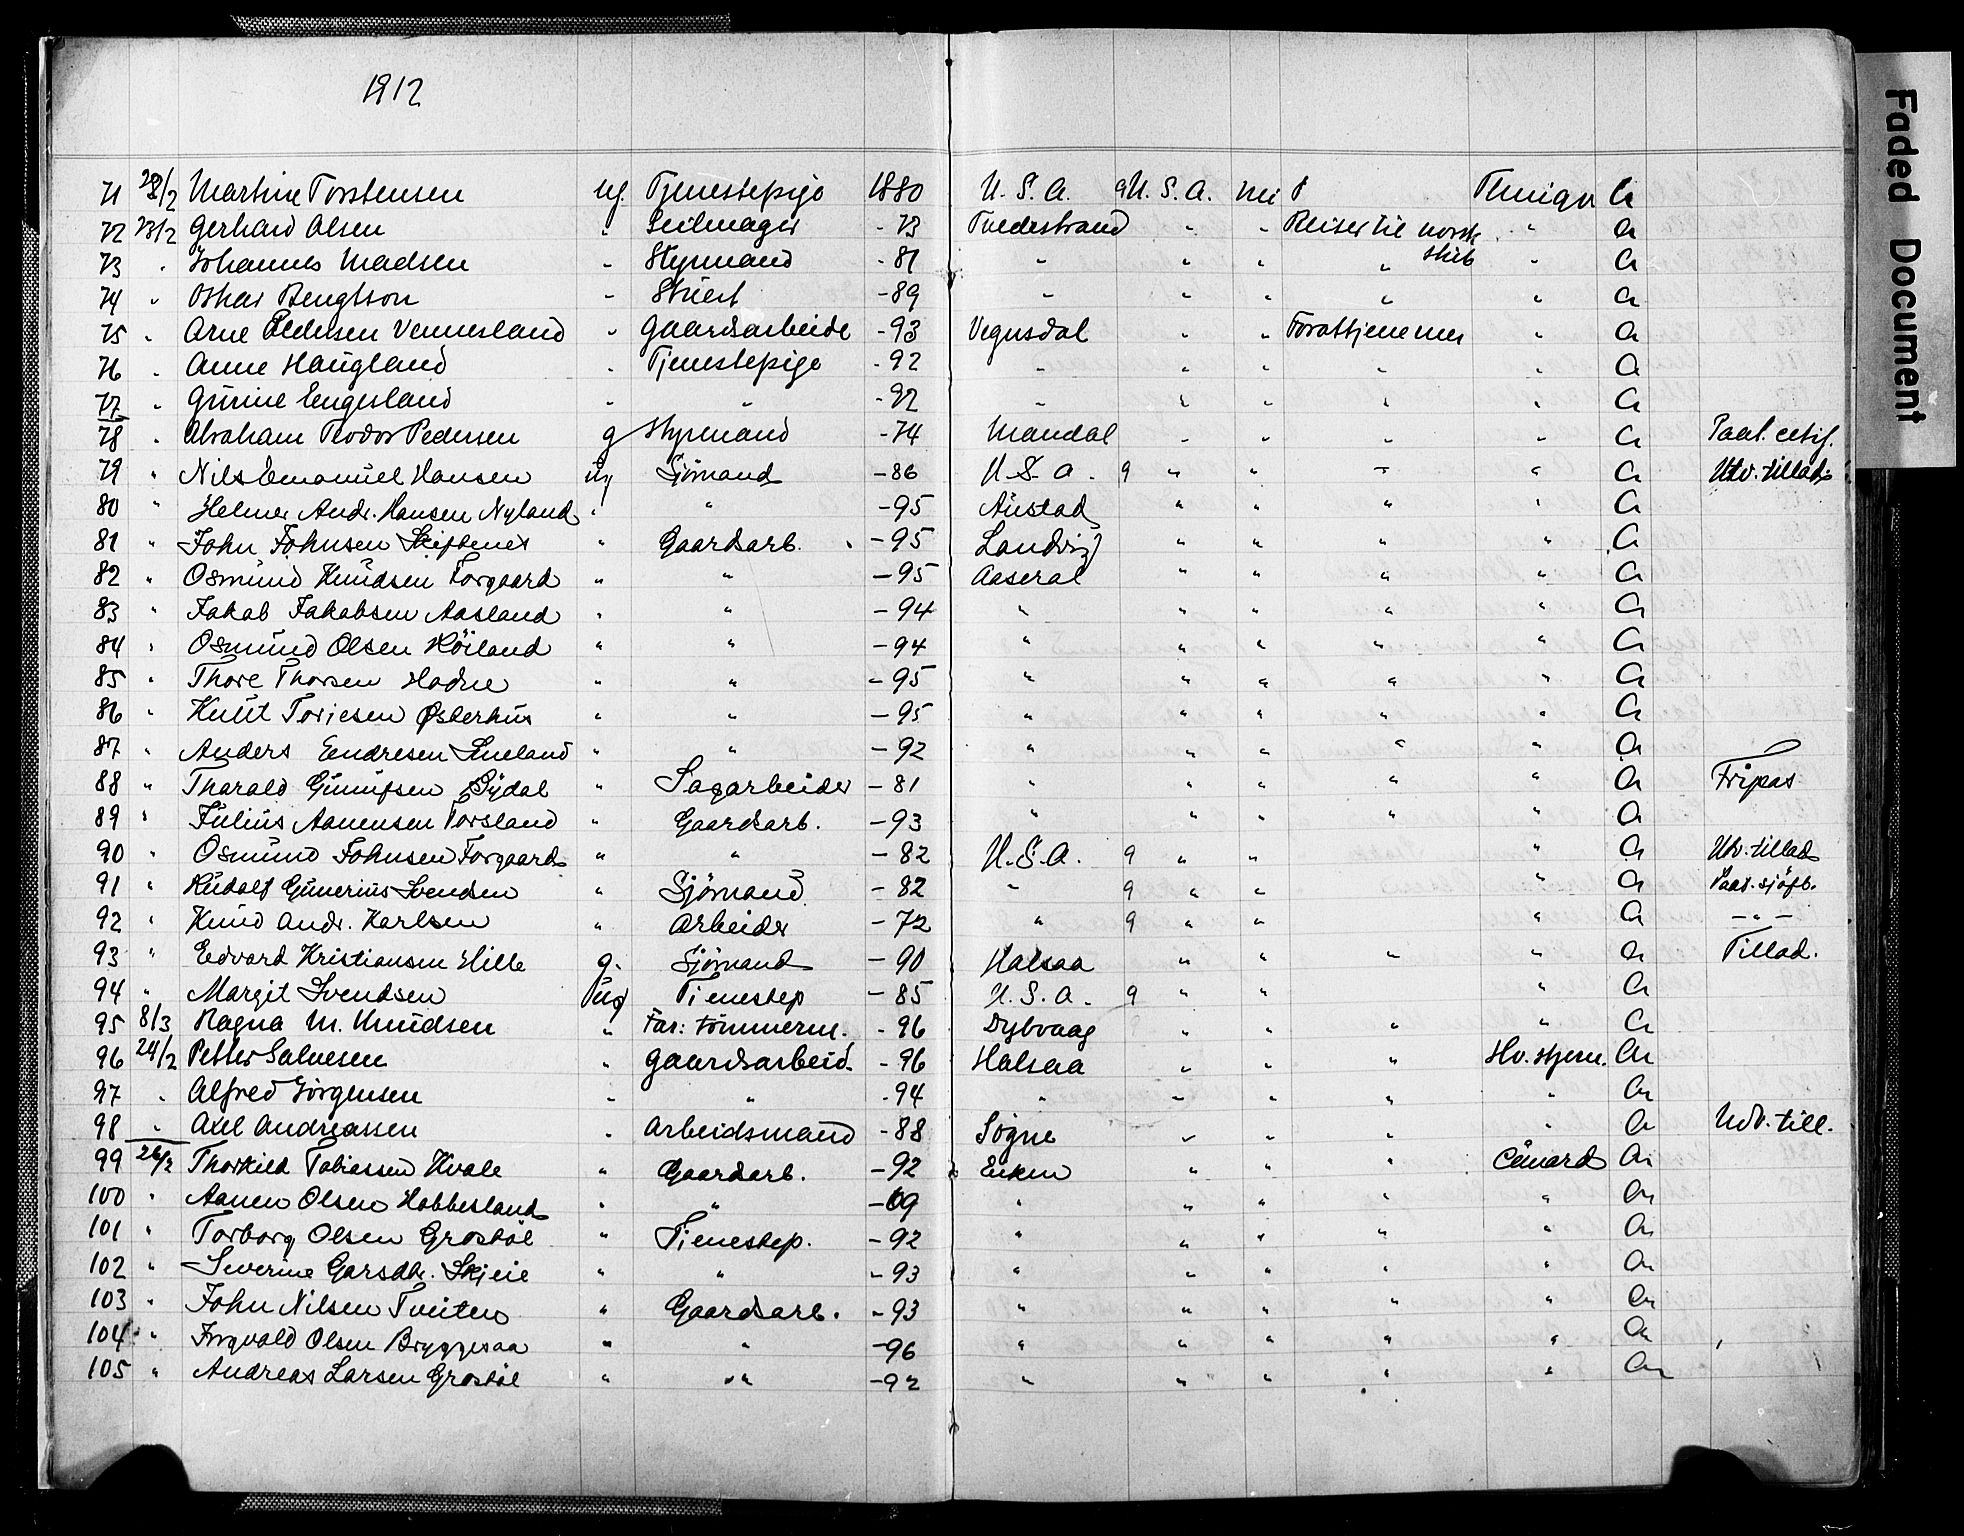 1912
71 28/2 Martine Torstensen ug. Tjenestepige 1880 U.S.A. 9 U.S.A. nei
72 23/2 Gerhard Olsen " Seilmager - 73 Tvedestrand " " Reiser til norsk " a
skib
73 " Johannes Madsen " Styrmand - 81 " " " " " a
74 " Oskar Bengtson " Stuert - 89 " " " " " a
75 " Arne Pedersen Vennesland " Gaardsarbeide - 93 Vegusdal " " Forattjene mer " a
76 " Anne Haugland " Tjenestepige - 92 " " " " " a
77 " Gurine Engesland " " - 92 " " " " " a
78 " Abraham Teodor Pedersen g Styrmand - 74 Mandal " " " " a
79 " Nils Emanuel Hansen ug Sjömand - 86 U.S.A. 9 " " " " a Utv. tillad
80 " Helmer Andr. Hansen Nyland " " - 95 Austad " " " " a
81 " John Johnsen Skiftenes " Gaardsarb. - 95 Landvig " " " " a
82 " Osmund Knudsen Forgaard " " - 95 Aaseral " " " " a
83 " Jakob Jakobsen Aasland " " - 94 " " " " " a
84 " Osmund Olsen Höiland " " - 94 " " " " " a
85 " Thore Thorsen Hadne " " - 95 " " " " " a
86 " Knut Torjesen Østerhus " " - 95 " " " " " a
87 " Anders Eendresen Lueland " " - 92 " " " " " a
88 " Tharald Gunufsen Bydal " Sagarbeider - 81 " " " " " a Fripas
89 " Julius Aanensen Forsland " Gaardsarb. - 93 " " " " " a
90 " Osmund Johnsen Forgaard " " - 82 U.S.A. 9 " " " a Utv. tillad
91 " Rudolf Gunerius Svendsen " Sjömand - 82 " 9 " " " a Paat. sjöfb.
92 " Knud Andr. Karlsen " Arbeider - 72 " 9 " " " a - " -
93 " Eedvard Kristiansen Hille g. Sjömand - 90 Halsaa " " " " a Tillad.
94 " Margit Svendsen ug Tienestep - 85 U.S.A. 9 " " " a
95 8/3 Ragna M. Knudsen " Far: tömmerm. - 96 Dybvaag " " " " a
96 24/2 Petter Salvesen " gaardsarbeid. - 96 Halsaa " " " Hv. stjern. a
97 " Alfred Jörgensen " " - 94 " " " " " a
98 " Axel Andreassen " Arbeidsmand - 88 Sögne " " " " a Udv. till.
99 26/2 Thorkild Tobiassen Kvale " Gaardsarb. - 92 Eiken " " " Cunard a
100 " Aanen Olsen Hobbesland " " - 69 " " " " " a
101 " Torborg Olsen Grostöl " Tienestep. - 92 " " " " " a
102 " Severine Garsdtr. Skjeie " " - 93 " " " " " a
103 " John Nilsen Tveiten " Gaardsarb. - 93 " " " " " a
104 " Ingvald Olsen Bryggesaa " " - 96 " " " " " a
105 " Andreas Larsen Grostöl " " - 92 " " " " " a
Faded Document